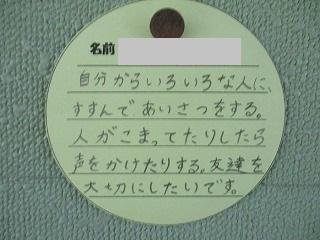 名前
自分からいろいろな人に、
すすんであいさつをする。
人がこまってたりしたら
声をかけたりする。友達を
大切にしたいです。